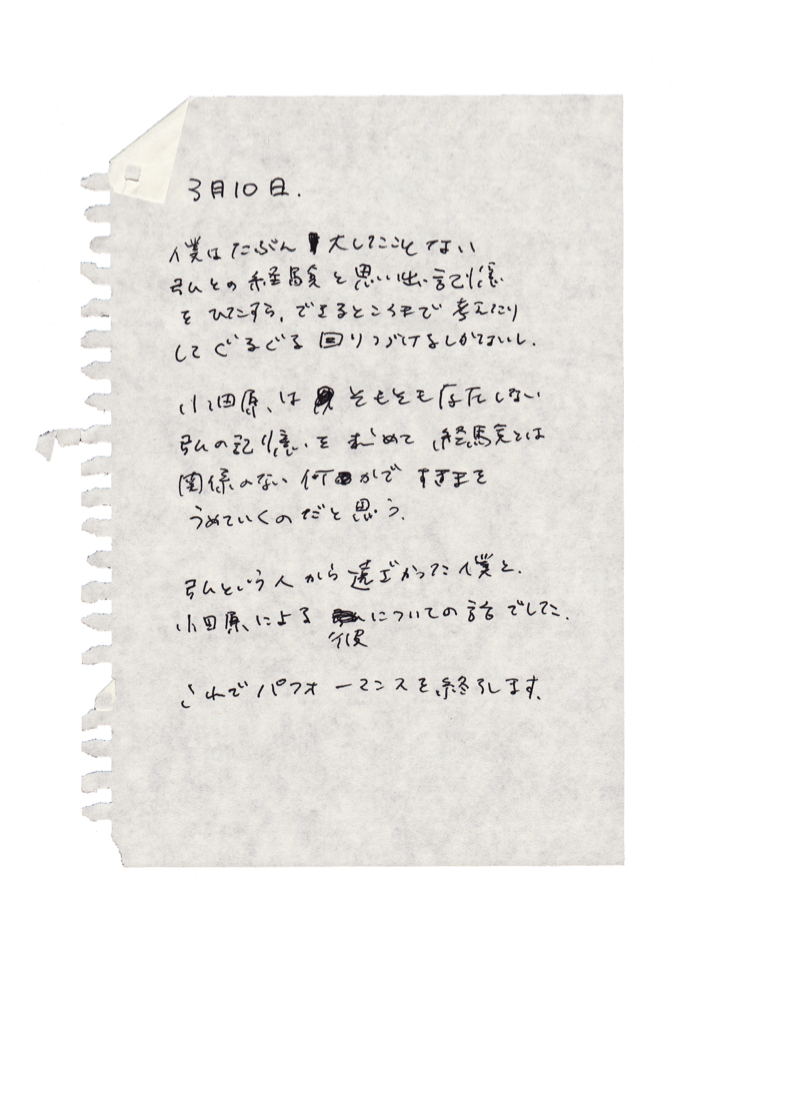 3月10日.
僕はたぶん 大したことない
弘との経験と思い出、記憶
をひたすら、できるところまで考えたり
してぐるぐる回りつづけるしかないし.
小田原、は そもそも存在しない
弘の記憶、を求めて 経験とは
関係のない何かで すきまを
うめていくのだと思う.
弘という人から遠ざかった僕と.
小田原、による 彼についての話でした.
これでパフォーマンスを終了します.